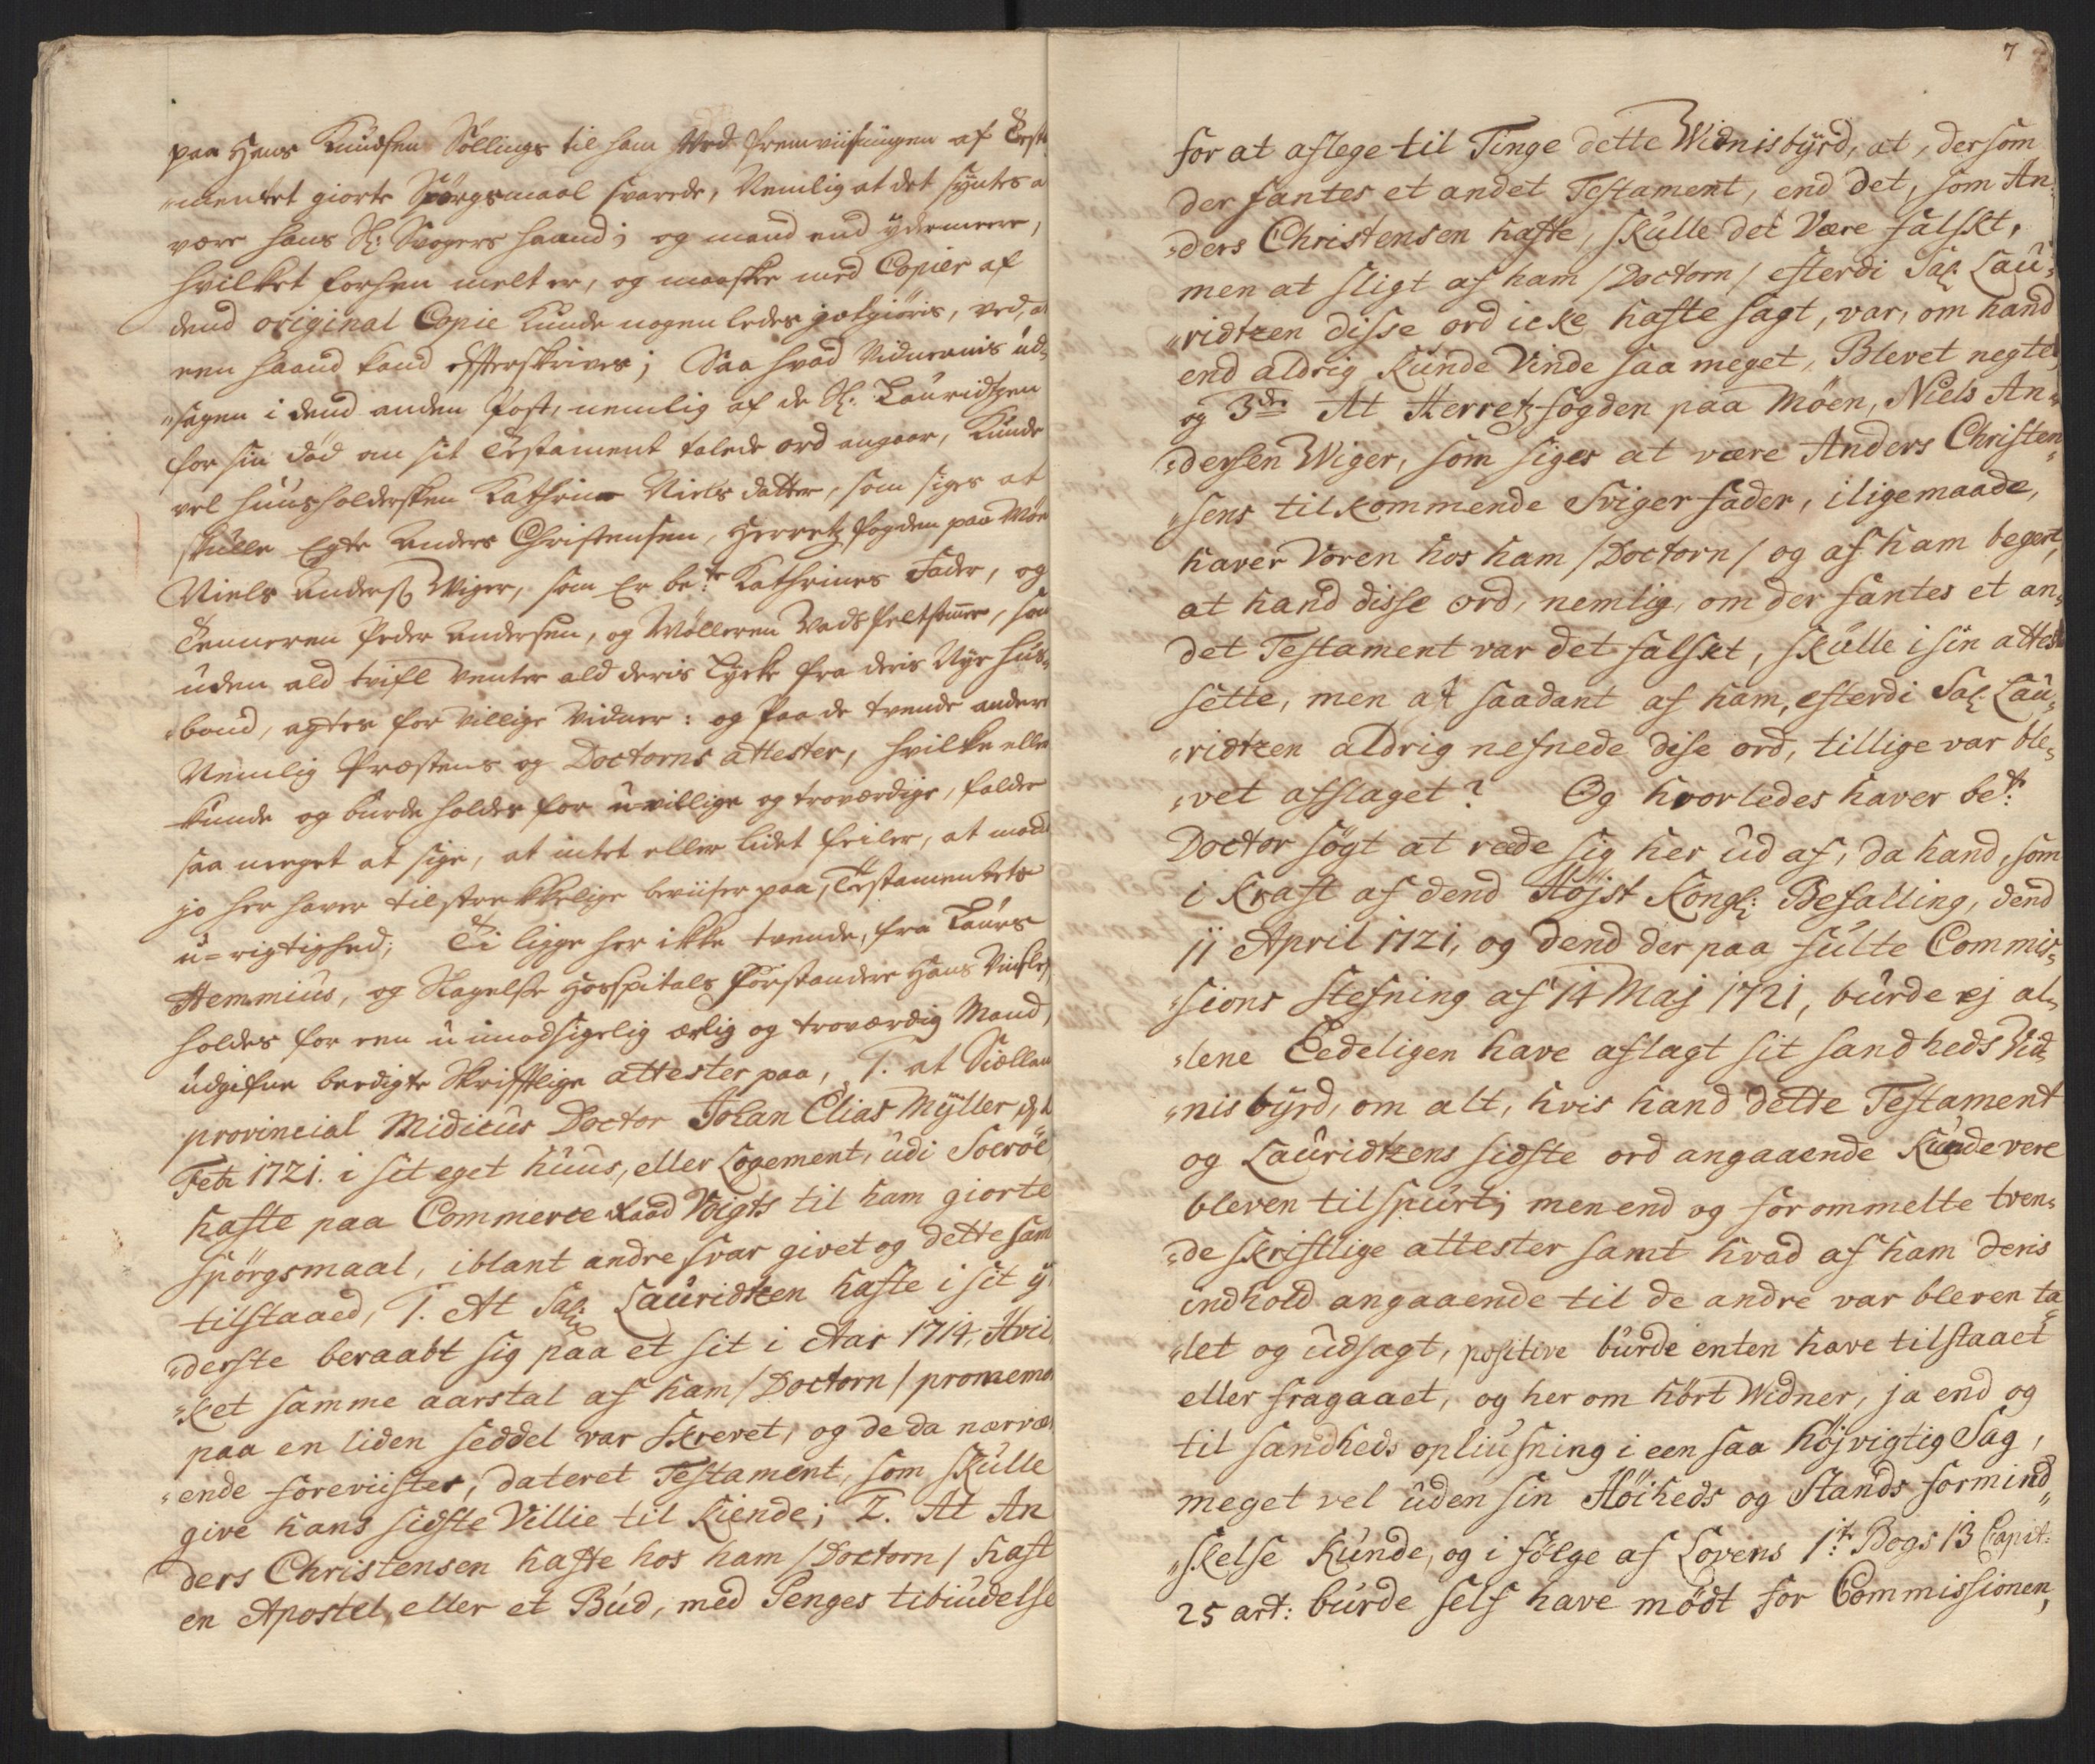 paa Hans Knudsen Söllings til ham Ved fremviisningen af Testa
„mentet giorte Spörgsmaal svarede, Nemlig at det syntes a
være hans Sl: Svogers haand; og mand end ydermeere,
hvilket forhen melt er, og maaskee med Copier af
dend original Copie kunde nogenledes godgiöris, ved, a
een haand kand efterskrives; Saa hvad Vidnernis ud„
„sagen i dend anden Post, nemlig af de Sl: Lauridtzen
for sin död om sit Testament talede ord angaar, kunde
vel huusholdersken Kathrine Niels datter, som siges at
skulle Egte Anders Christensen, Herretz fogden paa Möen
Niels Anders: Wiger, som Er bete Kathrines Fader, og
Tienneren Peder Andersen, og Mölleren Mads , som
uden ald tvifl venter ald deris Lycke fra deris Nye Hus„
„bond, agtes for villige vidner: og paa de tvende andere
Nemlig Præstens og Doctorns attester, hvilke ellers
kunde og burde holdes for u-villige og troværdige, falder
saa meeget at sige, at intet eller lidet feiler, at mand
jo her haver tilstrekkelige beviiser paa, Testamentets
u=rigtighed; Ti ligge her ikke tvende, fra Laurs
Hemmius, og Slagelse Hospitals Forstander Hans ,
holdes for een uimodsigelig ærlig og troværdig Mand,
udgifne beedigte Skrifftlige attester paa, 1. at Siællan
provincial Midicus Doctor Johan Elias Mÿller d:
Feb: 1721. i sit eget huus, eller Logement, udi Soeröe
hafte paa Commerce Raad Voigts til ham giorte
spörgsmaal, iblant andre svar givet og dette sam
tilstaaed, 1. At Sal: Lauridtzen hafte i sit ÿ
„derste beraabt sig paa et sit i Aar 1714, Hvil
„ket samme aarstal af ham /Doctorn/ promemo
paa en liden seddel var skrevet, og de da nærvæ
„ende foreviister, dateret Testament, som skulle
give hans sidste Villie til kiende; 2. At An
ders Christensen hafte hos ham /Doctorn/ haft
en Apostel, eller et Bud, med Penges tibiudelse
7
for at aflege til Tinge dette Widnisbÿrd, at, dersom
der fantes et andet Testament, end det, som An„
„ders Christensen hafte, skulle det Være falskt,
men at sligt af ham /Doctorn/ efterdi Sal: Lau„
„ridtzen disse ord icke hafte sagt, var, om hand
end aldrig kunde Vinde saa meget, Blevet negtet
og 3de At Herretz fogden paa Möen, Niels An„
„dersen Wiger, som siges at være Anders Christen„
„sens tilkommende Sviger fader, i ligemaade,
haver Voren hos ham /Doctorn/ og af ham begert,
at hand disse ord, nemlig, om der fantes et an„
det Testament var det falskt, skulle i sin attest
sette, men at saadant af ham, efterdi Sal: Lau„
„ridtzen aldrig nefnede dise ord, tillige var ble„
„vet afslaget? Og hvorledes haver bete:
Doctor sögt at rede sig her ud af, da hand, som
i Kraft af dend Höjst Kongl: Befalling, dend
11 April 1721, og dend der paa fulte Commis„
„sions stefning af 14 Maj 1721, burde ej al„
„lene Eedeligen have aflagt sit sandheds Vid„
„nisbÿrd, om alt, hvis hand dette Testament
og Lauridtzens sidste ord angaaende kunde vere
bleven tilspurt; men end og forommelte tven„
„de skriftlige attester samt hvad af ham deris
indhold angaaende til de andre var bleven ta„
„let og udsagt, positive burde enten have tilstaaet
eller fragaaet, og her om hört Widner, ja end og
til sandheds opliusning i een saa höjvigtig Sag,
meget vel uden sin Höiheds og Stands formind„
„skelse kunde, og i fölge af Lovens 1te Bogs 13 Capit:
25 art: burde self have mödt for Commissionen,